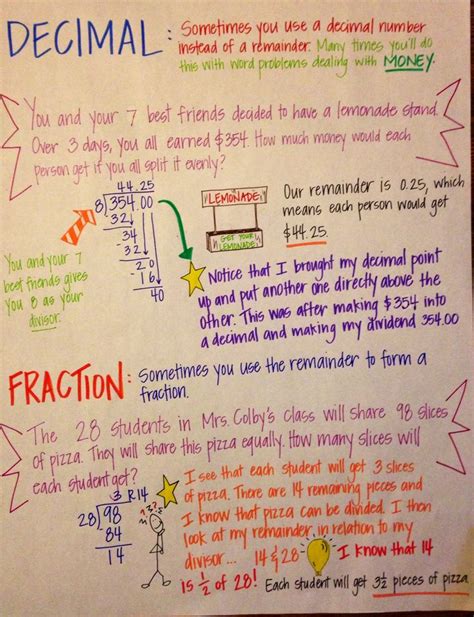 DECIMAL: Sometimes you use a decimal number
instead of a remainder. Many times you'll do
this with word problems dealing with MONEY.
You and your 7 best friends decided to have a lemonade stand.
Over 3 days, you all earned $354. How much money would each
person get if you all split it evenly?
44.25
8)354.00
32
34
32
20
16
40
You and your 7
best friends gives
you 8 as your
divisor.
LEMONADE
GET YOUR
LEMONADE
Our remainder is 0.25, which
means each person would get
$44.25.
Notice that I brought my decimal point
up and put another one directly above the
other. This was after making $354 into
a decimal and making my dividend 354.00
FRACTION: Sometimes you use the remainder to form a
fraction.
The 28 students in Mrs. Colby's class will share 98 slices
of pizza. They will share this pizza equally. How many slices will
each student get?
3 R14
28)98
84
14
???
I see that each student will get 3 slices
of pizza. There are 14 remaining pieces and
I know that pizza can be divided. I then
look at my remainder, in relation to my
divisor.... 14 & 28 I know that 14
is ½ of 28! Each student will get 3½ pieces of pizza.